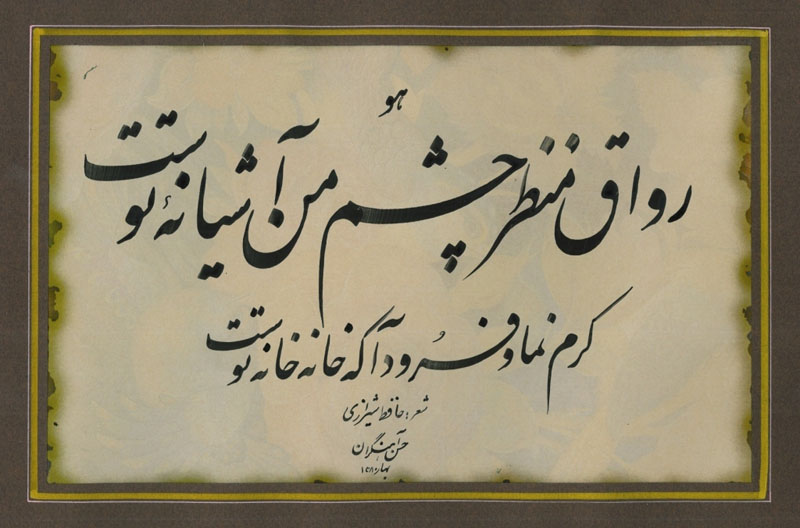 هو
رواق منظر چشم من آشیانهٔ توست
کرم نما و فرود آ که خانه خانه توست
شعر: حافظ شیرازی
حسن آهنگران
بهار ۱۳۸۰